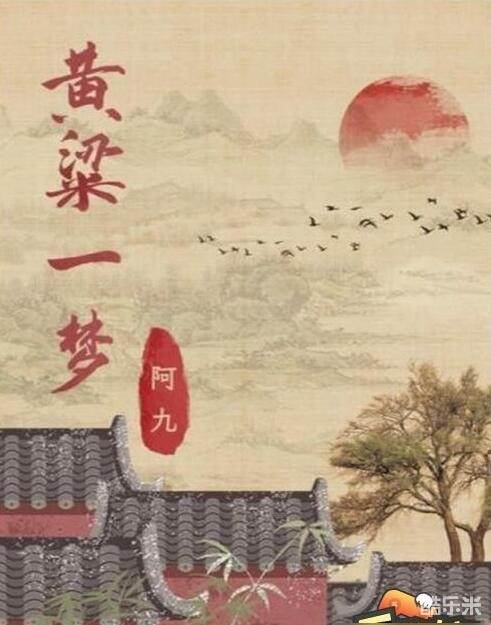 黄粱一梦
阿九
酷乐米